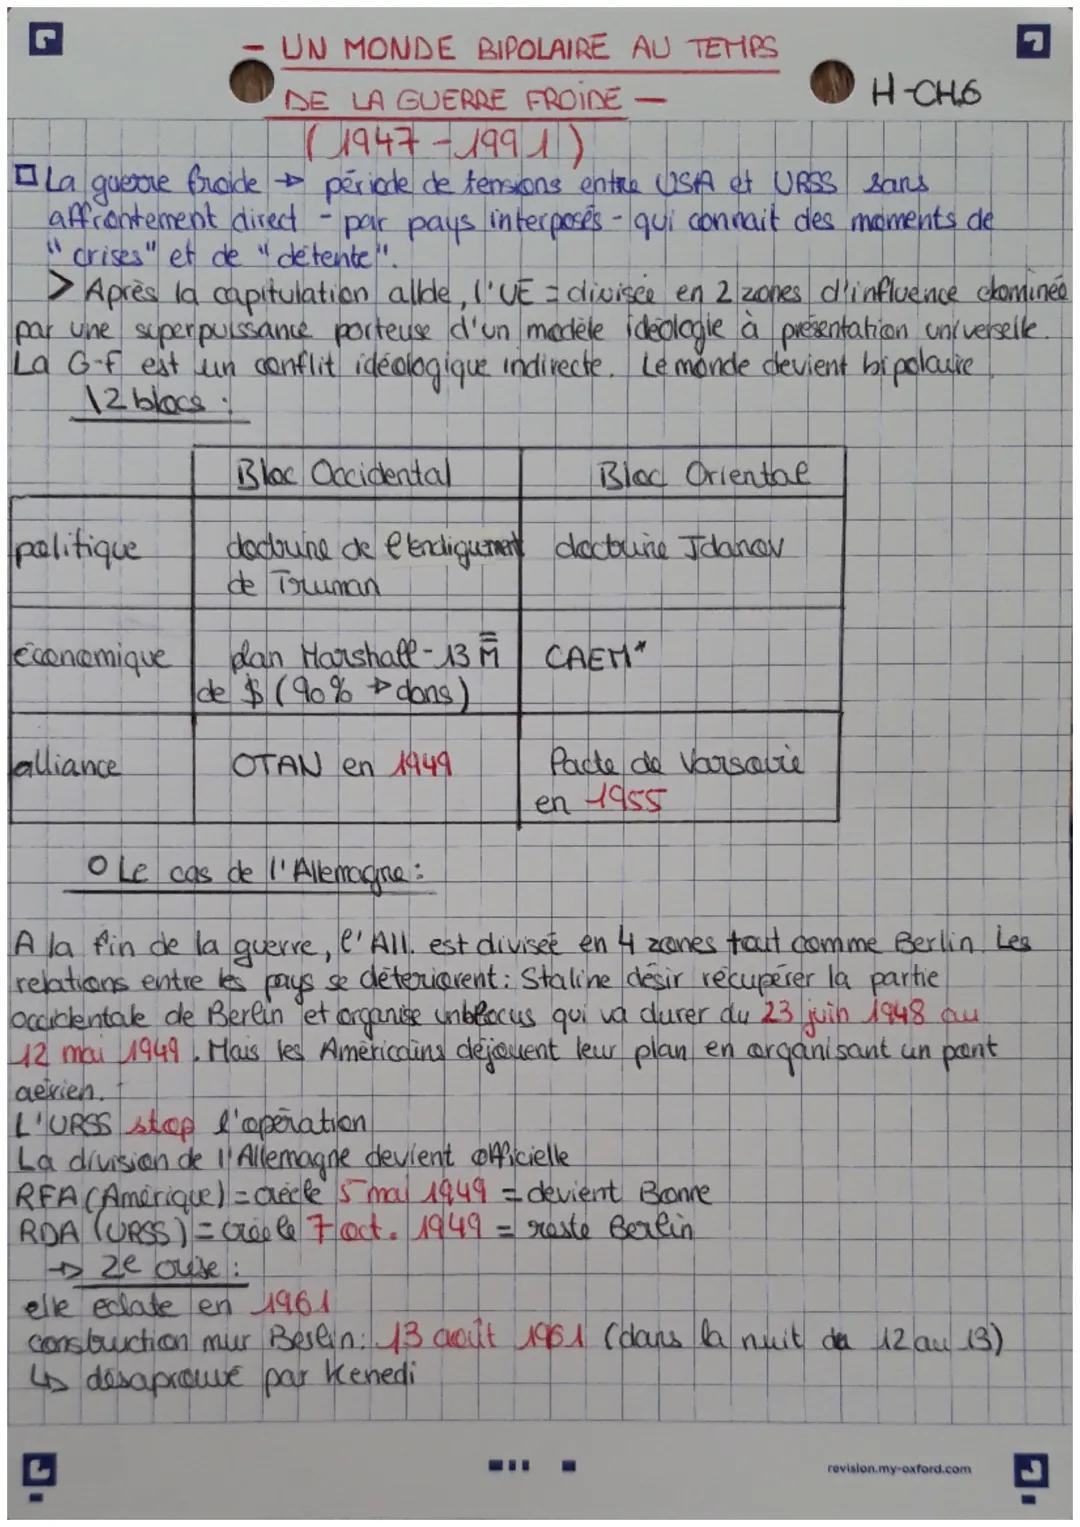 - UN MONDE BIPOLAIRE AU TEMPS
DE LA GUERRE FROIDE -
H-CH.6
(1947-1991)
La guerre froide → période de tensions entre USA et URSS sans
affrontement direct - par pays interposés - qui connait des moments de
"crises" et de "détente".
> Après la capitulation allde, l'UE = divisée en 2 zones d'influence dominée
par une superpuissance porteuse d'un modèle idéologie à présentation universelle.
La G-f est un conflit idéologique indirecte. Le monde devient bipolaire.
\2 blocs :
Bloc Occidental Bloc Oriental
politique doctrine de l'endiguement doctrine Jdanov
de Truman
économique plan Marshall - 13 M CAEM*
de $ (90% → dons)
alliance OTAN en 1949 Pacte de Varsovie
en 1955
O Le cas de l'Allemagne :
A la fin de la guerre, l'All. est divisée en 4 zones tout comme Berlin. Les
relations entre les pays se déteriorent : Staline désir récupérer la partie
occidentale de Berlin et organise un blocus qui va durer du 23 juin 1948 au
12 mai 1949. Mais les Américains déjouent leur plan en organisant un pont
aérien.
L'URSS stop l'opération
La division de l'Allemagne devient officielle
RFA (Amérique) = créé le 5 mai 1949 = devient Bonne
RDA (URSS) = créé le 7 oct. 1949 = reste Berlin
→ 2e crise :
elle éclate en 1961
construction mur Berlin : 13 août 1961 (dans la nuit du 12 au 13)
↳ désaprouvé par Kenedi
revision.my-oxford.com